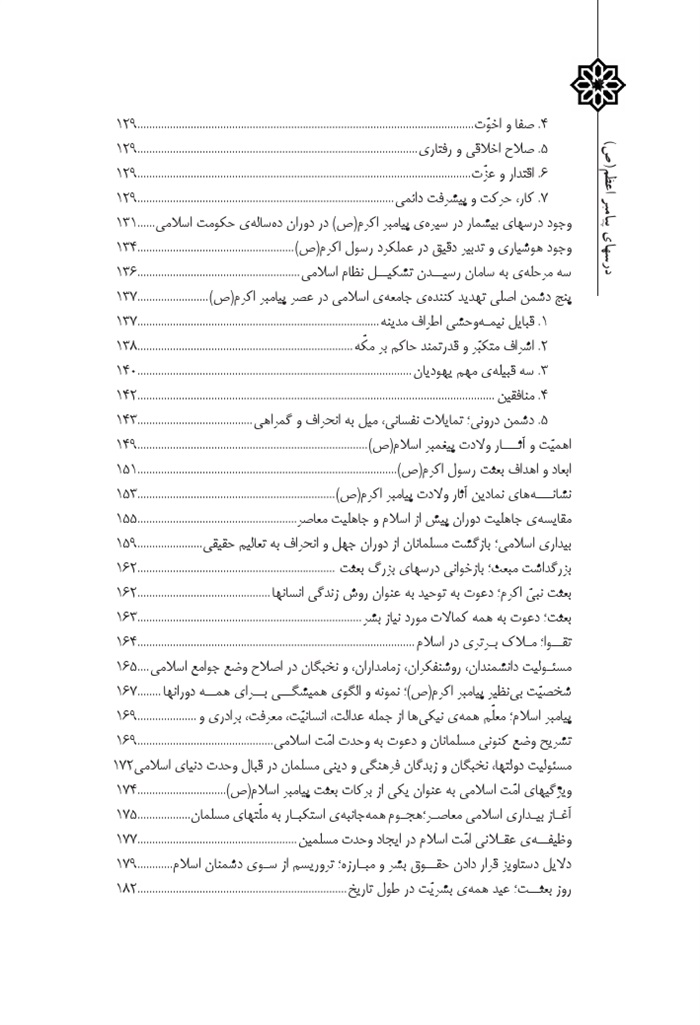 درسهای پیامبر اعظم(ص)
۴. صفا و اخوّت....................۱۲۹
۵. صلاح اخلاقی و رفتاری....................۱۲۹
۶. اقتدار و عزّت....................۱۲۹
۷. کار، حرکت و پیشرفت دائمی....................۱۲۹
وجود درسهای بیشمار در سیره‌ی پیامبر اکرم(ص) در دوران ده‌ساله‌ی حکومت اسلامی.....۱۳۱
وجود هوشیاری و تدبیر دقیق در عملکرد رسول اکرم(ص)....................۱۳۴
سه مرحله‌ی به سامان رسیدن تشکیل نظام اسلامی....................۱۳۶
پنج دشمن اصلی تهدید کننده‌ی جامعه‌ی اسلامی در عصر پیامبر اکرم(ص)....................۱۳۷
۱. قبایل نیمه‌وحشی اطراف مدینه....................۱۳۷
۲. اشراف متکبّر و قدرتمند حاکم بر مکّه....................۱۳۸
۳. سه قبیله‌ی مهم یهودیان....................۱۴۰
۴. منافقین....................۱۴۲
۵. دشمن درونی؛ تمایلات نفسانی، میل به انحراف و گمراهی....................۱۴۳
اهمیّت و آثار ولادت پیغمبر اسلام(ص)....................۱۴۹
ابعاد و اهداف بعثت رسول اکرم(ص)....................۱۵۱
نشانه‌های نمادین آثار ولادت پیامبر اکرم(ص)....................۱۵۳
مقایسه‌ی جاهلیت دوران پیش از اسلام و جاهلیت معاصر....................۱۵۵
بیداری اسلامی؛ بازگشت مسلمانان از دوران جهل و انحراف به تعالیم حقیقی....................۱۵۹
بزرگداشت مبعث؛ بازخوانی درسهای بزرگ بعثت ....................۱۶۲
بعثت نبیّ اکرم؛ دعوت به توحید به عنوان روش زندگی انسانها....................۱۶۲
بعثت؛ دعوت به همه کمالات مورد نیاز بشر....................۱۶۳
تقوا؛ ملاک برتری در اسلام ....................۱۶۴
مسئولیت دانشمندان، روشنفکران، زمامداران، و نخبگان در اصلاح وضع جوامع اسلامی....۱۶۵
شخصیّت بی‌نظیر پیامبر اکرم(ص)؛ نمونه و الگوی همیشگی برای همه دورانها........۱۶۷
پیامبر اسلام؛ معلّم همه‌ی نیکی‌ها از جمله عدالت، انسانیّت، معرفت، برادری و ....................۱۶۹
تشریح وضع کنونی مسلمانان و دعوت به وحدت امّت اسلامی....................۱۶۹
مسئولیت دولتها، نخبگان و زبدگان فرهنگی و دینی مسلمان در قبال وحدت دنیای اسلامی۱۷۲
ویژگیهای امّت اسلامی به عنوان یکی از برکات بعثت پیامبر اسلام(ص)....................۱۷۴
آغاز بیداری اسلامی معاصر؛هجوم همه‌جانبه‌ی استکبار به ملّتهای مسلمان....................۱۷۵
وظیفه‌ی عقلانی امّت اسلام در ایجاد وحدت مسلمین....................۱۷۷
دلایل دستاویز قرار دادن حقوق بشر و مبارزه؛ تروریسم از سوی دشمنان اسلام............۱۷۹
روز بعثت؛ عید همه‌ی بشریّت در طول تاریخ....................۱۸۲